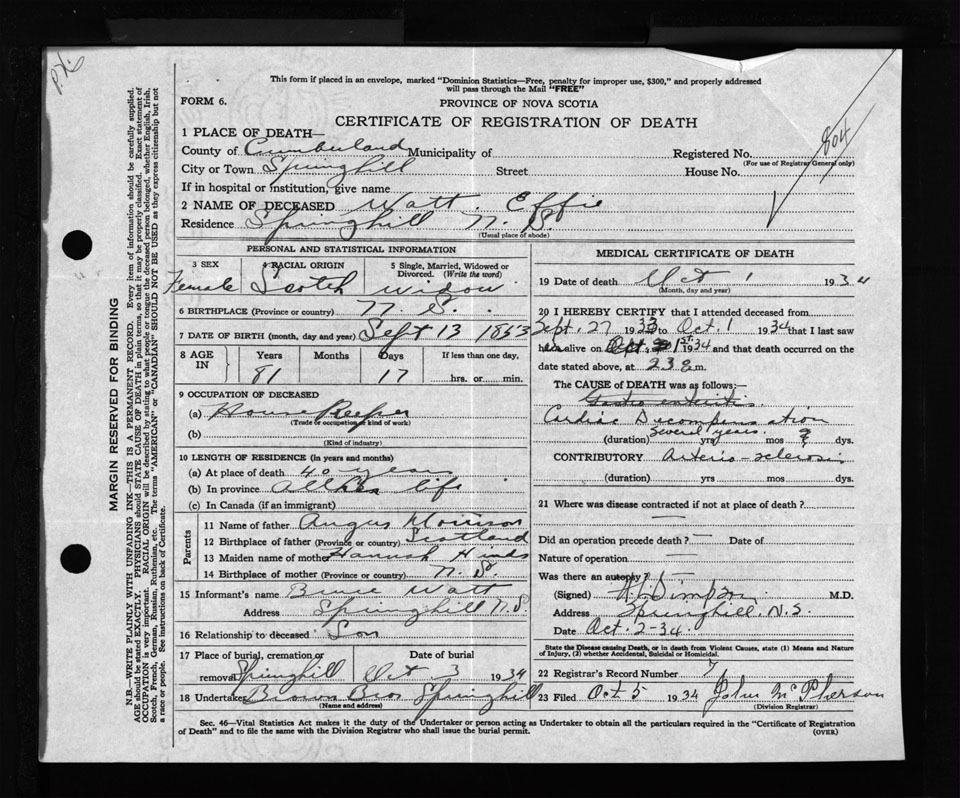 P.X.
This form if placed in an envelope, marked "Dominion Statistics—Free, penalty for improper use, $300," and properly addressed
will pass through the Mail "FREE"
FORM 6.
PROVINCE OF NOVA SCOTIA
CERTIFICATE OF REGISTRATION OF DEATH
804
1 PLACE OF DEATH—
County of Cumberland Municipality of Registered No.
(For use of Registrar General only)
City or Town Springhill Street House No.
If in hospital or institution, give name
2 NAME OF DECEASED Watt. Effie
Residence Springhill N. S.
(Usual place of abode)
PERSONAL AND STATISTICAL INFORMATION
3 SEX 4 RACIAL ORIGIN 5 Single, Married, Widowed or
Divorced. (Write the word)
Female Scotch widow
6 BIRTHPLACE (Province or country) N. S.
7 DATE OF BIRTH (month, day and year) Sept 13 1853
8 AGE IN Years Months Days If less than one day,
81 17 hrs. or min.
9 OCCUPATION OF DECEASED
(a) House Keeper
(Trade or occupation or kind of work)
(b)
(Kind of industry)
10 LENGTH OF RESIDENCE (in years and months)
(a) At place of death 40 years
(b) In province All her life
(c) In Canada (if an immigrant)
Parents
11 Name of father Angus Morrison
12 Birthplace of father (Province or country) Scotland
13 Maiden name of mother Hannah Hinds
14 Birthplace of mother (Province or country) N. S.
15 Informant's name Bruce Watt
Address Springhill N. S.
16 Relationship to deceased Son
17 Place of burial, cremation or Date of burial
removal Springhill Oct 3 1934
18 Undertaker Brown Bros Springhill
(Name and address)
MEDICAL CERTIFICATE OF DEATH
19 Date of death Oct 1 1934
(Month, day and year)
20 I HEREBY CERTIFY that I attended deceased from
Sept. 27 1933 to Oct. 1 1934 that I last saw
her alive on Oct. 1st 1934 and that death occurred on the
date stated above, at 23 a m.
The CAUSE OF DEATH was as follows:—
Gastro enteritis.
Cardiac Decompensation
(duration) Several years. yrs mos dys.
CONTRIBUTORY Arterio-sclerosis
(duration) yrs mos dys.
21 Where was disease contracted if not at place of death?
—
Did an operation precede death? — Date of
Nature of operation —
Was there an autopsy? —
(Signed) Simpson M.D.
Address Springhill, N.S.
Date Oct. 2-34.
State the Disease causing Death, or in death from Violent Causes, state (1) Means and Nature
of Injury, (2) whether Accidental, Suicidal or Homicidal.
22 Registrar's Record Number 71
23 Filed Oct 5 1934 John McPherson
(Division Registrar)
Sec. 46—Vital Statistics Act makes it the duty of the Undertaker or person acting as Undertaker to obtain all the particulars required in the "Certificate of Registration
of Death" and to file the same with the Division Registrar who shall issue the burial permit.
(OVER)
MARGIN RESERVED FOR BINDING
N.B.—WRITE PLAINLY WITH UNFADING INK—THIS IS A PERMANENT RECORD. Every item of information should be carefully supplied.
AGE should be stated EXACTLY. PHYSICIANS should STATE CAUSE OF DEATH in plain terms, so that it may be properly classified. Exact statement of
OCCUPATION is very important. RACIAL ORIGIN will be described by stating to what people or tongue the deceased person belonged, whether English, Irish,
Scotch, French, German, Russian, Ruthenian, etc. The terms "AMERICAN" or "CANADIAN" SHOULD NOT BE USED as they express citizenship but not
a race or people. See instructions on back of Certificate.